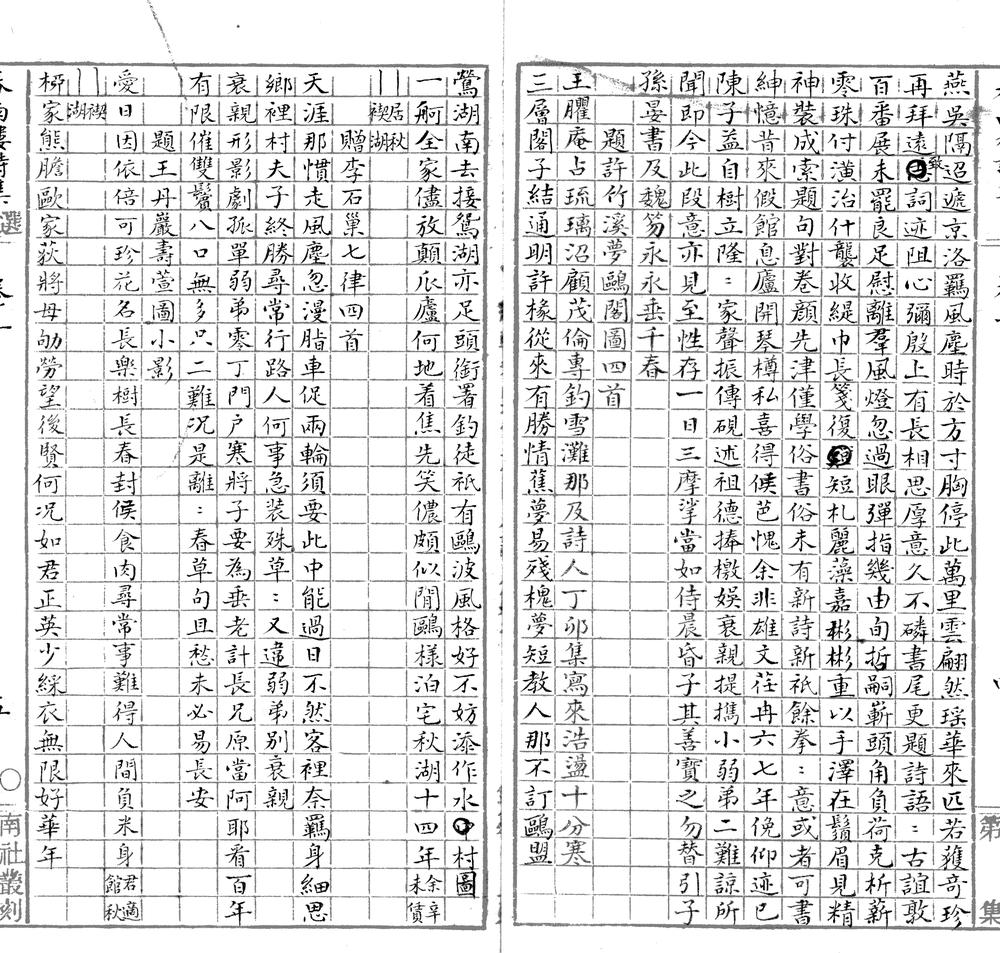 燕吳隔迢遞京洛羈風塵時於方寸胸停此萬里雲翩然瑶華來匹若獲奇珍
再拜遠致詞迹阻心彌殷上有長相思厚意久不磷書尾更題詩語：古誼敦
百番展未罷良足慰離羣風燈忽過眼彈指幾由旬哲嗣嶄頭角負荷克析薪
零珠付潢治什襲收緹巾長箋復短札麗藻嘉彬彬重以手澤在鬚眉見精
神裝成索題句對卷顔先津僅學俗書俗未有新詩新祇餘拳：意或者可書
紳憶昔來假館息廬開琴樽私喜得侯芭愧余非雄文荏冉六七年俛仰迹已
陳子益自樹立隆：家聲振傳硯述祖德捧檄娛衰親提攜小弱弟二難諒所
聞即今此段意亦見至性存一日三摩挲當如侍晨昏子其善寶之勿替引子
孫晏書及魏笏永永垂千春
題許竹溪夢鷗閣圖四首
王臞庵占琉璃沼顧茂倫專釣雪灘那及詩人丁卯集寫來浩盪十分寒
三層閣子結通明許椽從來有勝情蕉夢易殘槐夢短教人那不訂鷗盟
鶯湖南去接鴛湖亦足頭銜署釣徒祇有鷗波風格好不妨添作水村圖
一舸全家儘放顛瓜廬何地着焦先笑儂頗似閒鷗樣泊宅秋湖十四年余辛未賃
居秋禊湖
贈李石巢七律四首
天涯那慣走風塵忽漫脂車促兩輪須要此中能過日不然客裡奈羈身細思
鄉裡村夫子終勝尋常行路人何事急裝殊草：又違弱弟別衰親
衰親形影劇孤單弱弟零丁門戶寒將子要為垂老計長兄原當阿耶看百年
有限催雙鬢八口無多只二難況是離：春草句且愁未必易長安
題王丹巖壽萱圖小影
愛日因依倍可珍花名長樂樹長春封侯食肉尋常事難得人間負米身君適館秋
禊湖
柳家熊膽歐家荻將母劬勞望後賢何況如君正英少綵衣無限好華年
選
五
南社叢刻
第
集